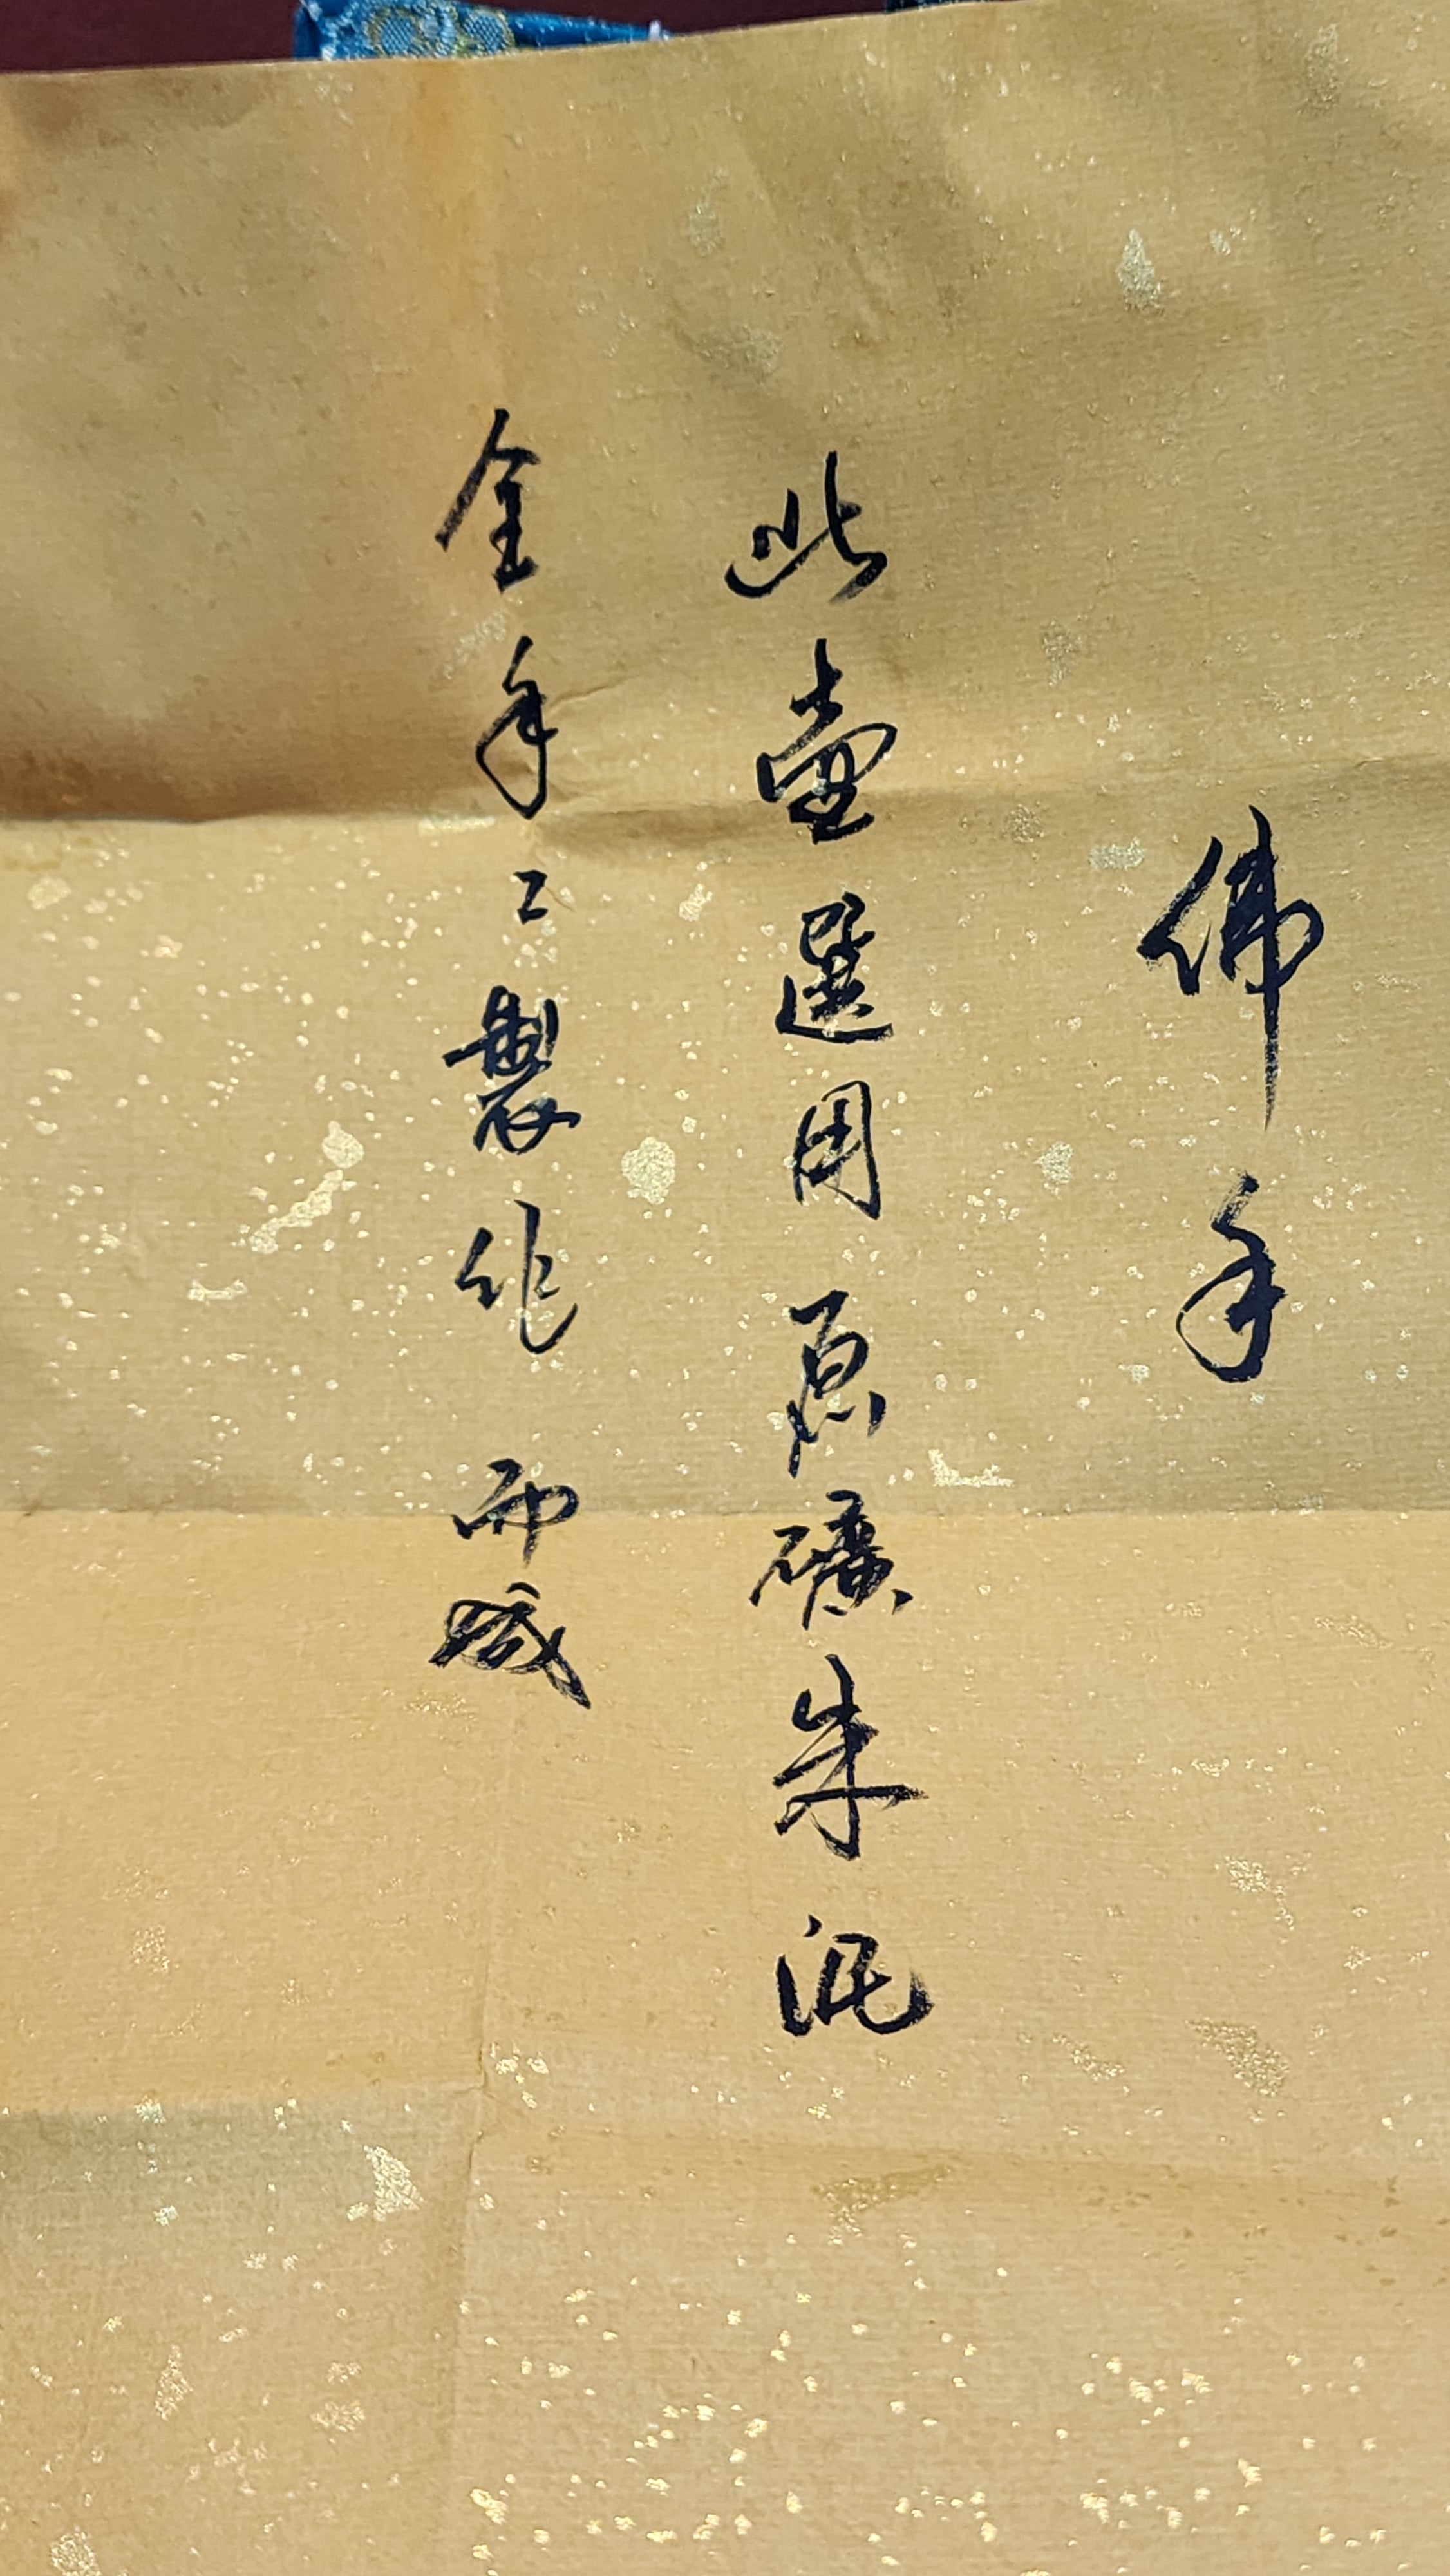 佛手
此壺選用原礦朱泥
全手工製作而成